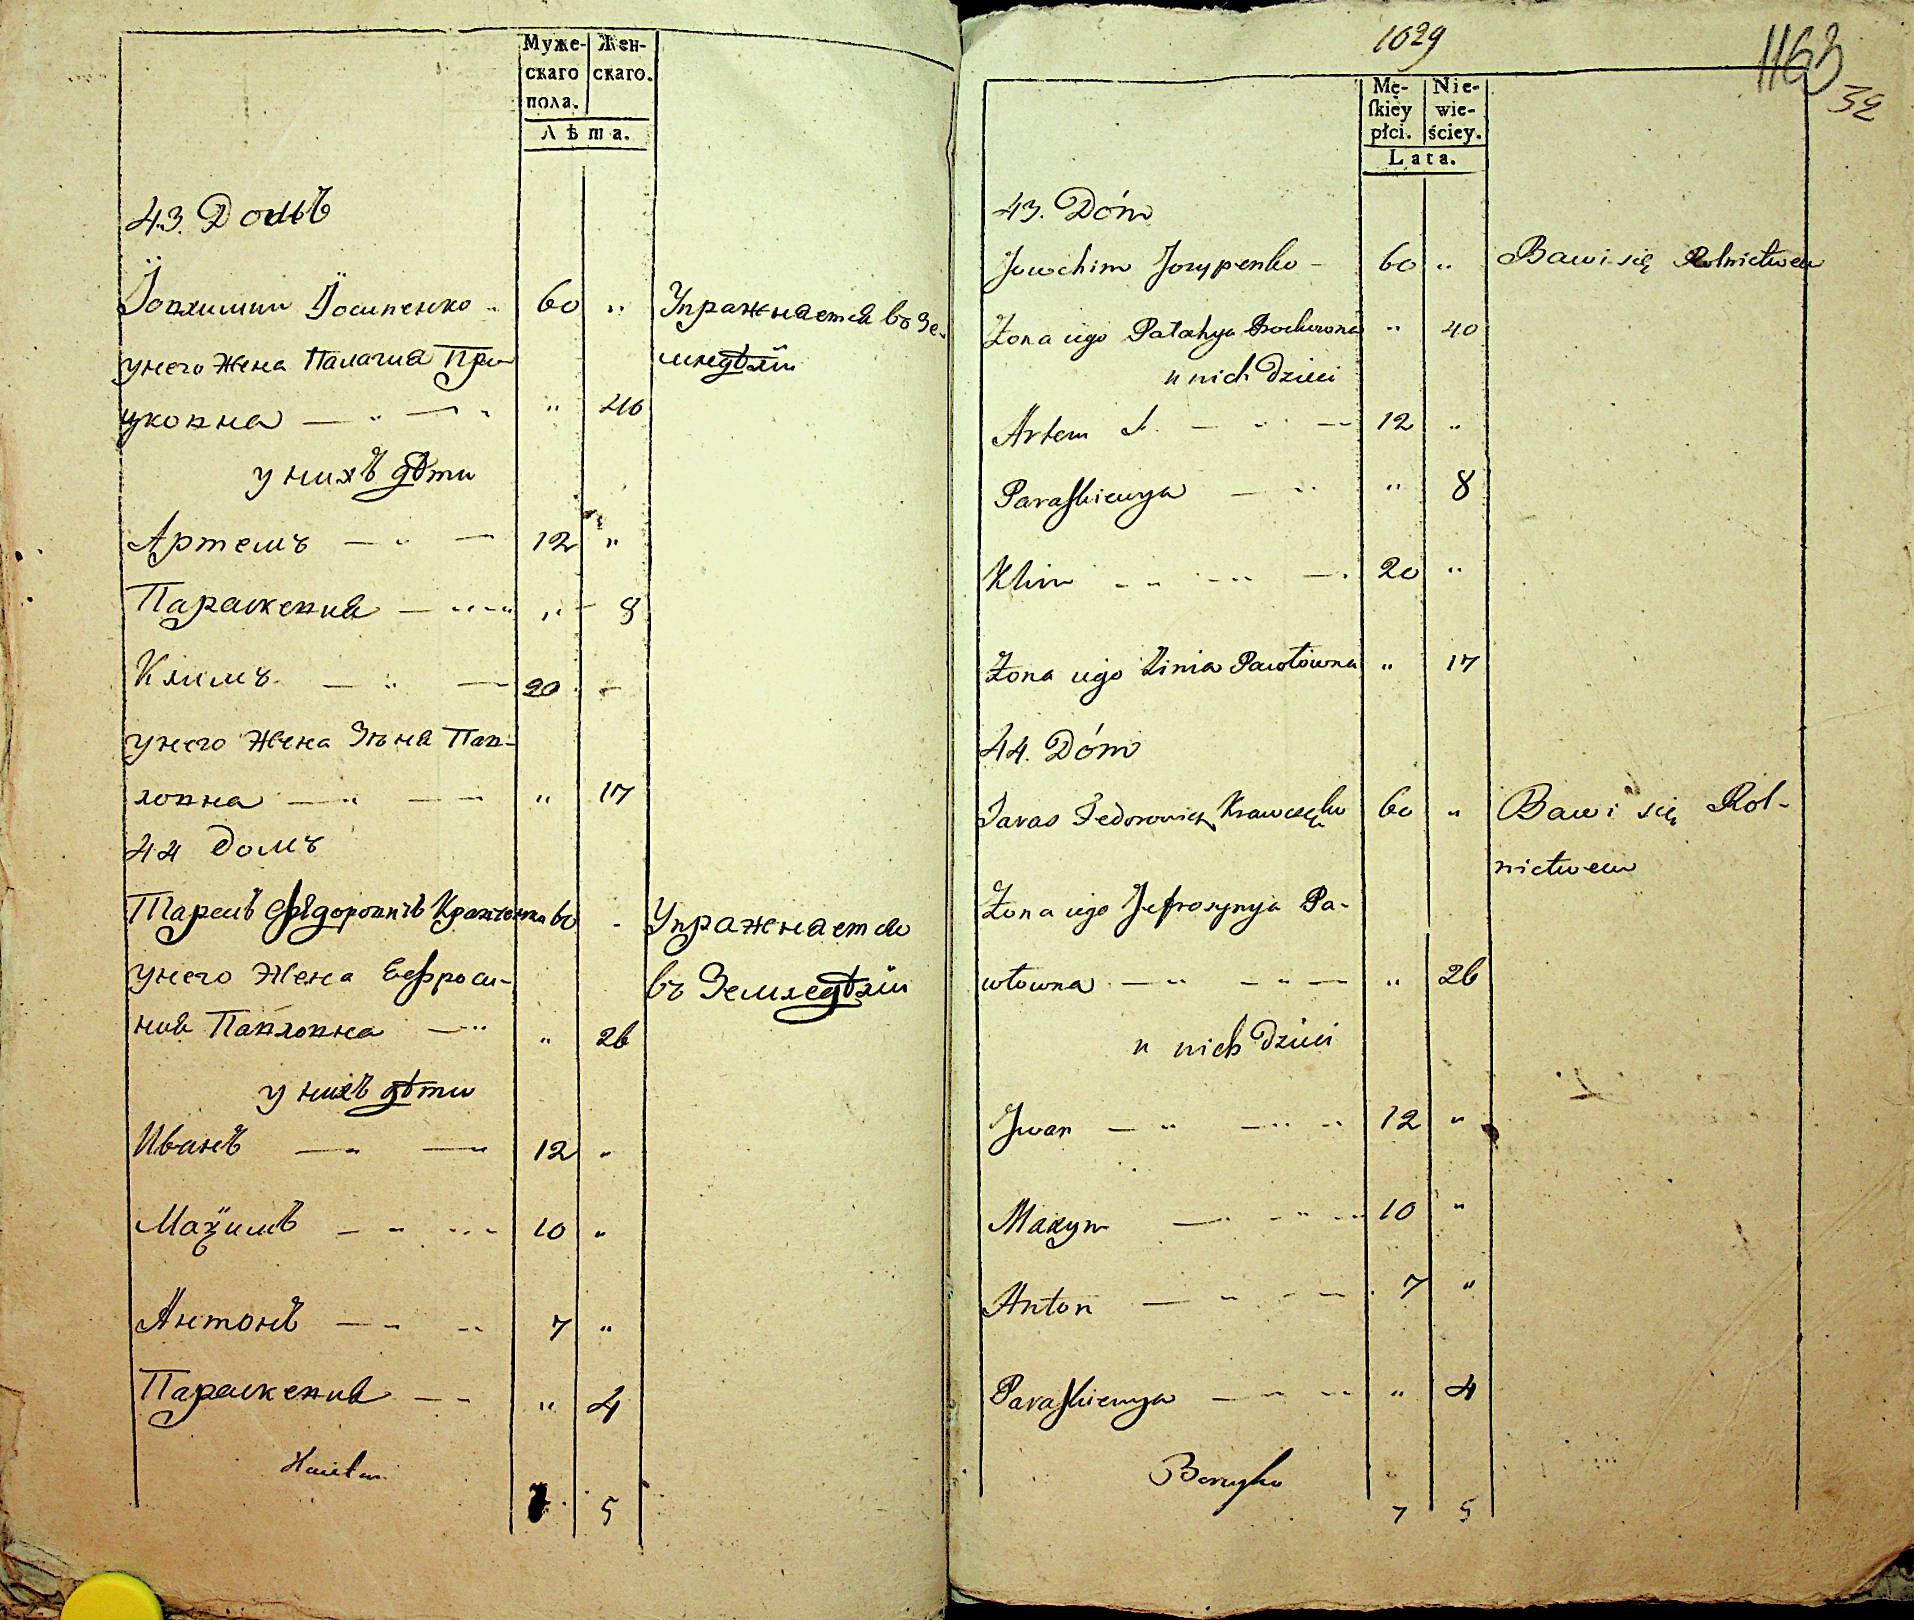 Муже-
скаго
пола.
Жен-
скаго.
Лѣта.
43. Домъ
Іоахимии Іосипенко 60 „ Упражняется въ Зе-
у него Жена Палагия Про-
мледѣліи
цковна „ 40
у нихъ дѣти
Артемъ 12 „
Параскевия „ 8
Климъ 20 -
у него Жена Зѣна Пав-
ловна „ 17
44 Домъ
Тарасъ Ѳедоровичъ Кравченко 60 - Упражняется
у него Жена Ефроси-
въ Земледѣліи
ния Павловна „ 26
у нихъ дѣти
Иванъ 12 „
Маѯимъ 10 „
Антонъ 7 „
Параскевия „ 4
7 5
1029
1163
32
Mę-
ſkiey
płci.
Nie-
wie-
ściey.
Lata.
43. Dóm
Jowchim Jozypenko - 60 „ Bawi się Rolnictwem
Żona iego Palahya Prockowna „ 40
u nich Dzieci
Artem 12 „
Paraſkiewya „ 8
Klim 20 „
Żona iego Zinia Pawłowna „ 17
44. Dóm
Taras Fedorowicz Krawczęko 60 „ Bawi się Rol-
nictwem
Żona iego Jefrosynya Pa-
włowna „ 26
u nich Dzieci
Jwan 12 „
Maxym 10 „
Anton 7 „
Paraſkiewya „ 4
7 5